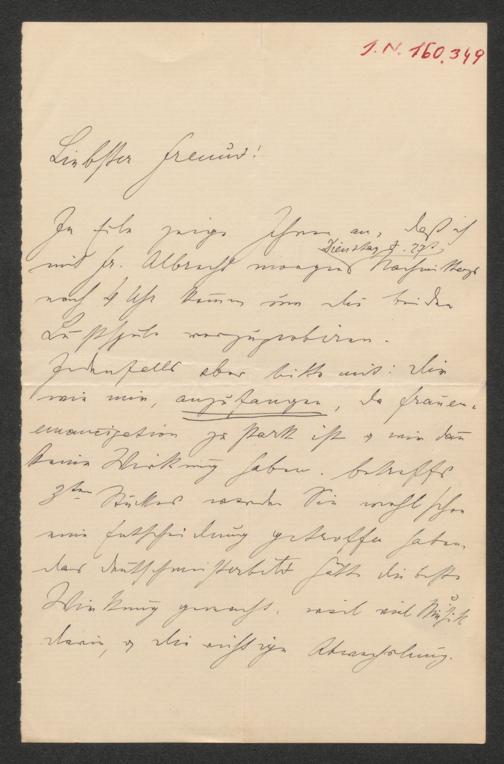 J.N. 160.349
Liebster Freund!
In Eile zeige Ihnen an, daß ich
Dienstag d. 27t.
mit Fr. Albrecht morgens Nachmittags
nach 4 Uhr komme um die beiden
Lustspiele vorzuprobiren.
Jedenfalls aber bitte mit: Die
wie mir, anzufangen, da Frauen-
emancipation zu stark ist & wir dan
keine Wirkung haben. Betreffs
3ten Stückes werden Sie wohl schon
eine Entscheidung getroffen haben.
das hätte die beste
Wirkung gemacht, weil viel Musik
darin, & die richtige Abwechslung.